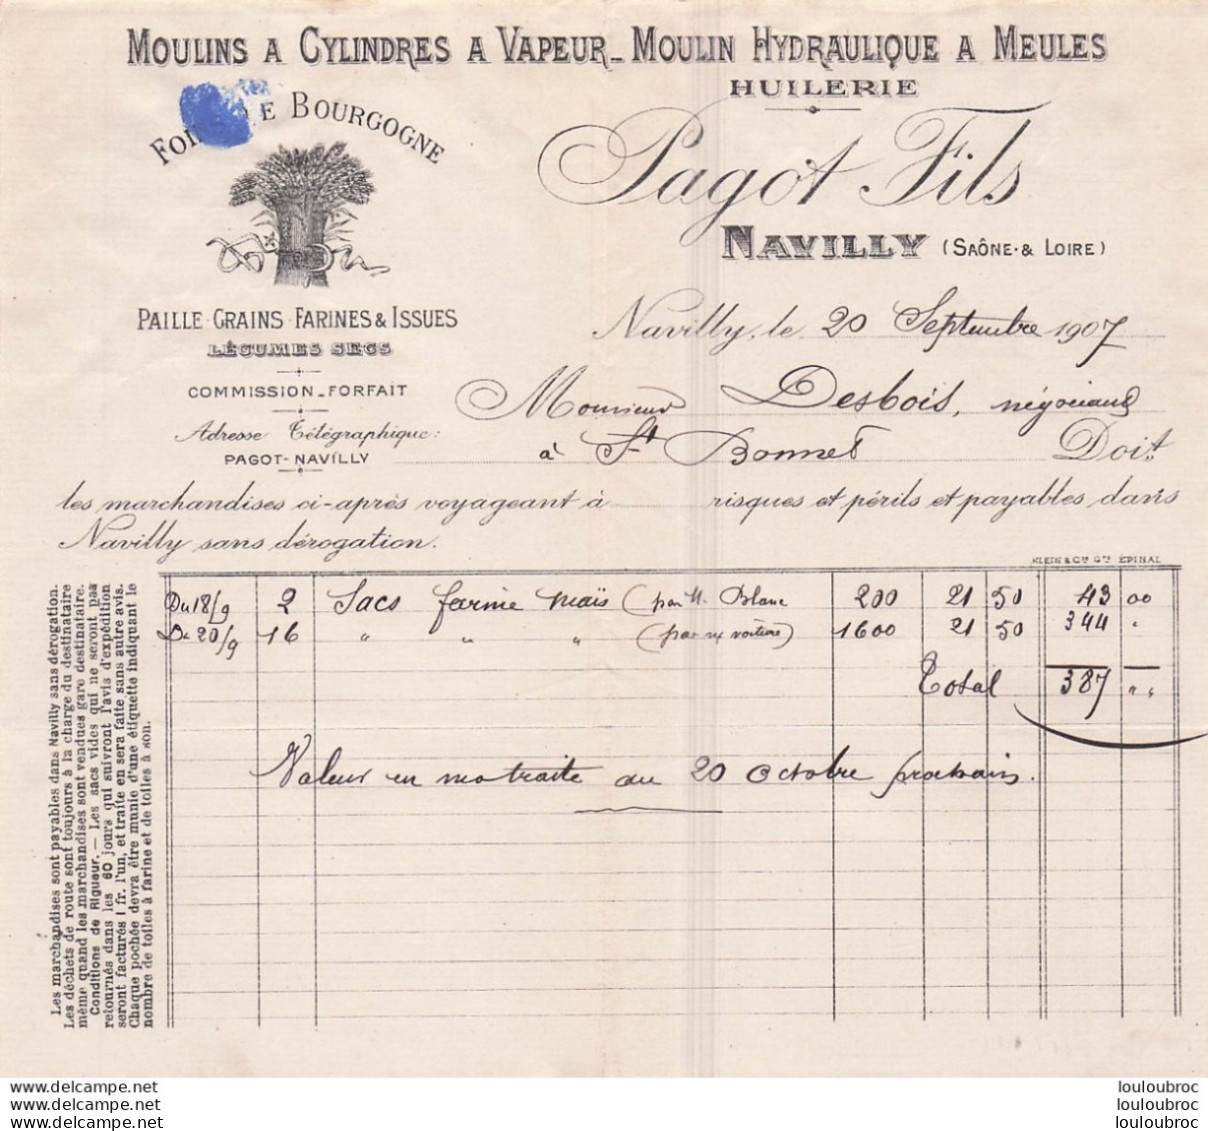 MOULINS A CYLINDRES A VAPEUR_ MOULIN HYDRAULIQUE A MEULES
HUILERIE
BOURGOGNE
Pagot Fils
NAVILLY (SAÔNE & LOIRE)
PAILLE·GRAINS·FARINES & ISSUES
LÉGUMES SECS
COMMISSION_FORFAIT
Adresse Télégraphique:
PAGOT-NAVILLY
Navilly, le 20 Septembre 1907
Monsieur Desbois, négociant
à St Bonnet Doit
les marchandises ci-après voyageant à risques et périls et payables dans
Navilly sans dérogation.
KLEIN & Cie ÉPINAL
Du 18/9 2 Sacs farine maïs (par M. Blanc 200 21 50 43 00
Du 20/9 16 " " " (par voiture) 1600 21 50 344 "
Total 387 " "
Valeur en ma traite au 20 Octobre prochain.
Les marchandises sont payables dans Navilly sans dérogation.
Les déchets de route sont toujours à la charge du destinataire
même quand les marchandises sont vendues gare destinataire.
Conditions de Rigueur. — Les sacs vides qui ne seront pas
retournés dans les 60 jours qui suivront l'avis d'expédition
seront facturés 1 fr. l'un, et traite en sera faite sans autre avis.
Chaque pochée devra être munie d'une étiquette indiquant le
nombre de toiles à farine et de toiles à son.
www.delcampe.net louloubroc
www.delcampe.net louloubroc
www.delcampe.net louloubroc